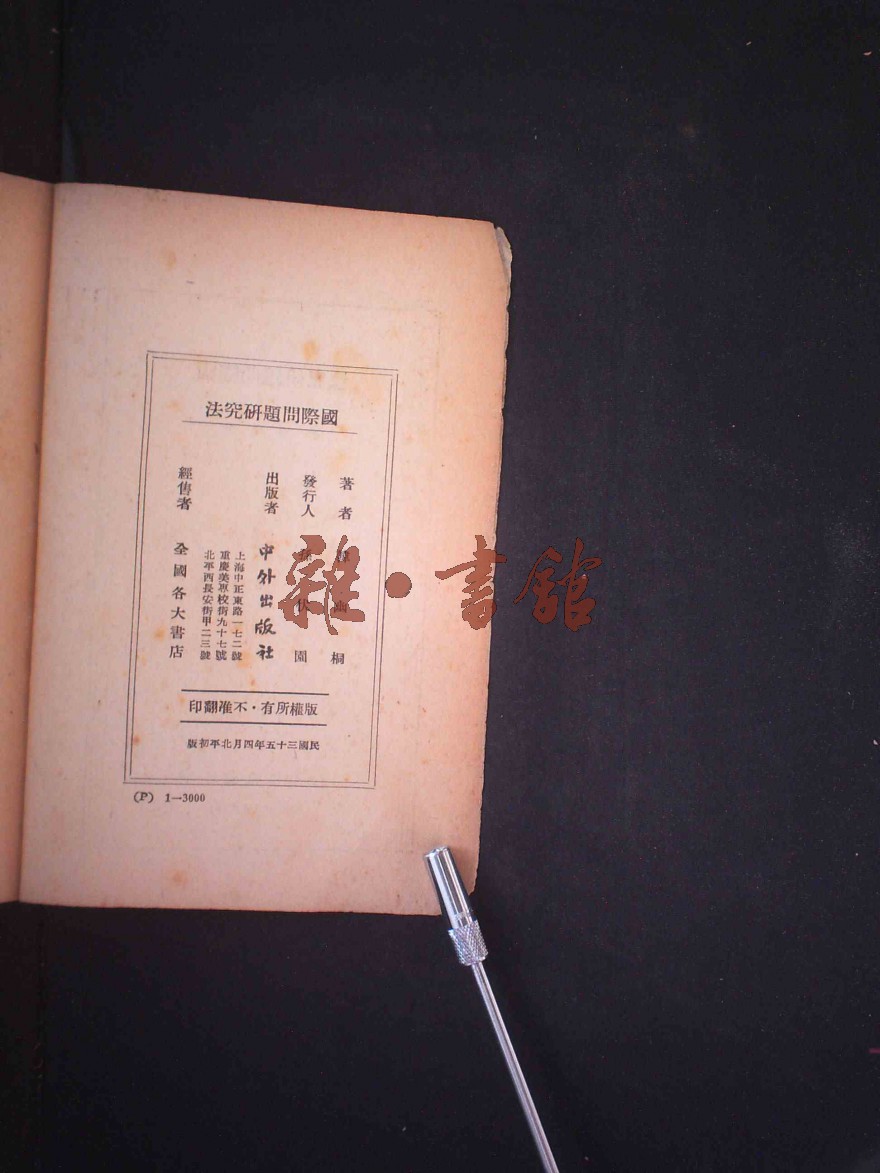 國際問題研究法
著者 韓幽桐
發行人 孫伏園
出版者 中外出版社
上海中正東路一七二號
重慶美專校街九十七號
北平西長安街甲二三號
經售者 全國各大書店
版權所有・不准翻印
民國三十五年四月北平初版
(P) 1—3000
雜・書館